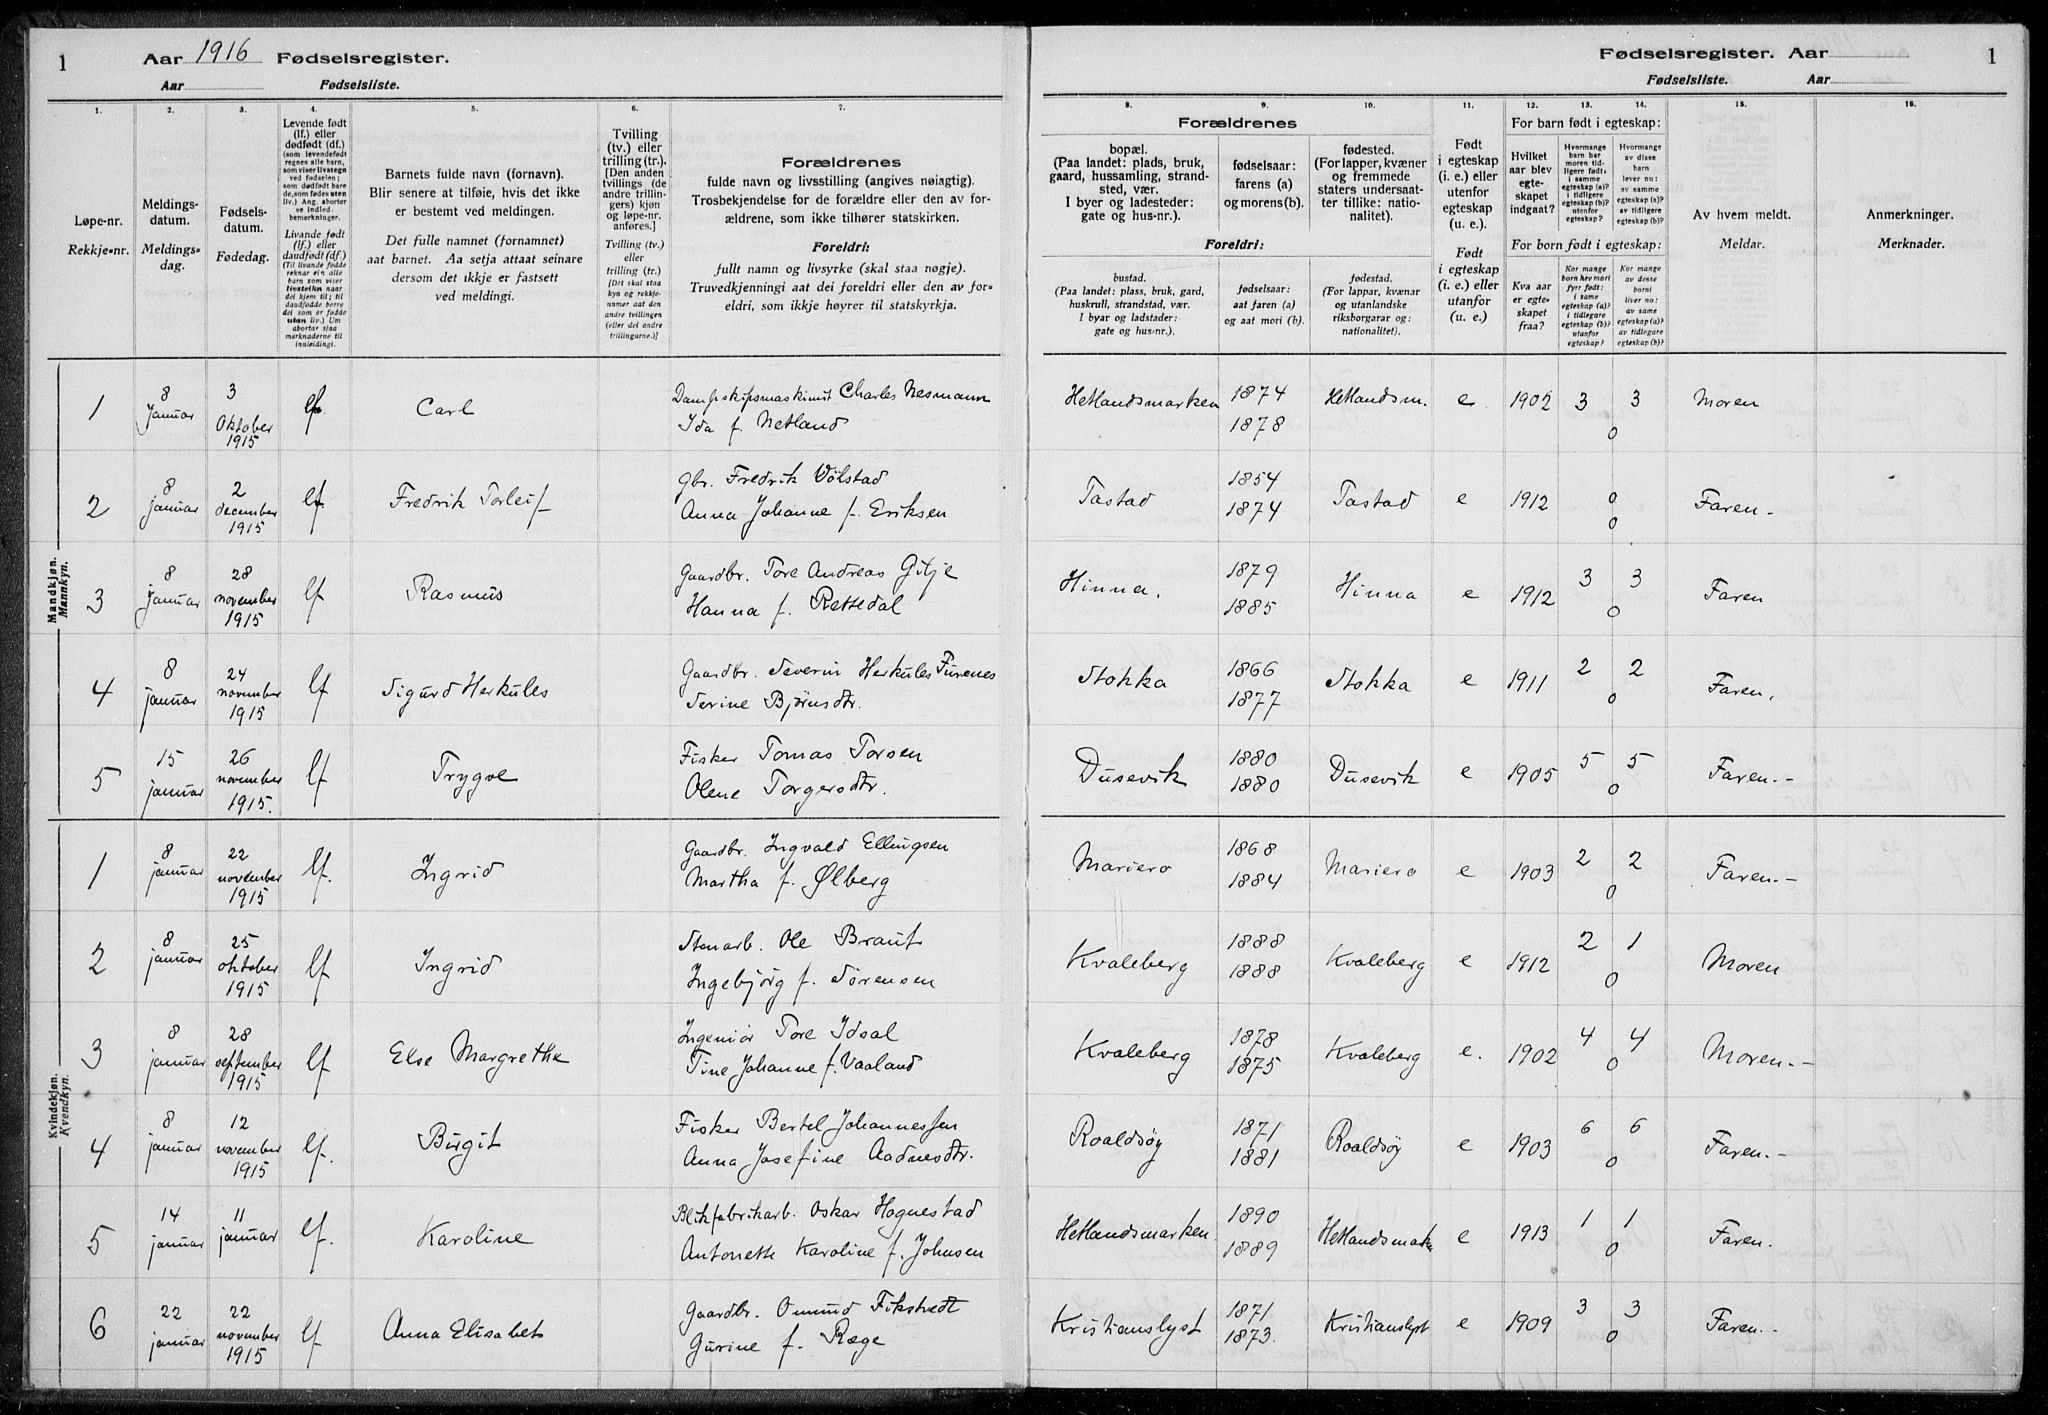 1 Aar 1916 Fødselsregister.
Aar Fødselsliste.
Fødselsregister. Aar 1
Fødselsliste. Aar
1. 2. 3. 4. 5. 6. 7. 8. 9. 10. 11. 12. 13. 14. 15. 16.
Løpe-nr.
Rekkje-nr.
Meldings-
datum.
Meldings-
dag.
Fødsels-
datum.
Fødedag.
Levende født
(lf.) eller
dødfødt (df.)
(som levendefødt
regnes alle barn,
som viser livstegn
ved fødselen;
som dødfødt bare
de, som fødes uten
liv.) Ang. aborter
se indled.
bemerkninger.
Livande født
(lf.) eller
daudfødt (df.)
(Til livande fødde
reknar ein alle
born som viser
livsteikn naar
dei kjem til; til
daudfødde berre
dei som er fødde
utan liv.) Um
abortar sjaa
merknaderne til
innleidingi.
Barnets fulde navn (fornavn).
Blir senere at tilføie, hvis det ikke
er bestemt ved meldingen.
Det fulle namnet (fornamnet)
aat barnet. Aa setja attaat seinare
dersom det ikkje er fastsett
ved meldingi.
Tvilling
(tv.) eller
trilling (tr.).
[Den anden
tvillings (de
andre trillin-
gers) kjøn
og løpe-nr.
anføres.]
Tvilling (tv.)
eller
trilling (tr.)
[Det skal staa
kyn og rekkje-
nummer aat den
andre tvillingen
(eller dei andre
trillingarne.)]
Forældrenes
fulde navn og livsstilling (angives nøiagtig).
Trosbekjendelse for de forældre eller den av for-
ældrene, som ikke tilhører statskirken.
Foreldri:
fullt namn og livsyrke (skal staa nøgje).
Truvedkjenningi aat dei foreldri eller den av for-
eldri, som ikkje høyrer til statskyrkja.
Forældrenes
bopæl.
(Paa landet: plads, bruk,
gaard, hussamling, strand-
sted, vær.
I byer og ladesteder:
gate og hus-nr.).
fødselsaar:
farens (a)
og morens (b).
fødested.
(For lapper, kvæner
og fremmede
staters undersaat-
ter tillike: natio-
nalitet).
Foreldri:
bustad.
(Paa landet: plass, bruk, gard,
huskrull, strandstad, vær.
I byar og ladstader:
gate og hus-nr.).
fødselsaar:
aat faren (a)
og aat mori (b).
fødestad.
(For lappar, kvænar
og utanlandske
riksborgarar og:
nationalitet).
Født
i egteskap
(i. e.) eller
utenfor
egteskap
(u. e.).
Født
i egteskap
(i. e.) eller
utanfor
(u. e.).
For barn født i egteskap:
Hvilket
aar blev
egte-
skapet
indgaat?
Hvormange
barn har
moren tid-
ligere født:
i samme
egteskap (a)?
i tidligere
egteskap (b)?
utenfor
egteskap?
Hvormange
av disse
barn
lever nu:
av samme
egteskap (a)?
av tidligere
egteskap (b)?
For born født i egteskap:
Kva aar
er egte-
skapet
fraa?
Kor mange
born hev mori
fyrr født:
i same
egteskap (a)?
i tidlegare
egteskap (b)?
utanfor
egteskap?
Kor mange
av desse
borni
liver no:
av same
egteskap (a)?
av tidlegare
egteskap (b)?
Av hvem meldt.
Meldar.
Anmerkninger.
Merknader.
Mandkjøn.
Mannkyn.
1 8 januar 3 Oktober 1915 lf Carl Dampskipsmaskinist Charles Nesmann
Ida f. Netland Hetlandsmarken 1874 1878 Hetlandsm. e 1902 3 3 0 Moren
2 8 januar 2 december 1915 lf. Fredrik Torleif gbr. Fredrik Vølstad
Anna Johanne f. Eriksen Tastad 1854 1874 Tastad e 1912 0 0 Faren.-
3 8 januar 28 november 1915 lf Rasmus Gaardbr. Tore Andreas Gilje
Hanna f. Rettedal Hinna. 1879 1885 Hinna e 1912 3 3 0 Faren
4 8 januar 24 november 1915 lf Sigurd Herkules Gaardbr. Severin Herkules Furenes
Serine Bjørnsdtr. Stokka 1866 1877 Stokka e 1911 2 2 0 Faren.
5 15 januar 26 november 1915. lf Trygve Fisker Tomas Torsen
Olene Torgersdtr. Dusevik 1880 1880 Dusevik e 1905 5 5 0 Faren.-
Kvindekjøn.
Kvendkyn.
1 8 januar 22 november 1915 lf. Ingrid Gaardbr. Ingvald Ellingsen
Martha f. Ølberg Mariero 1868 1884 Mariero e 1903 2 2 0 Faren.-
2 8 januar 25 oktober 1915 lf Ingrid Stenarb. Ole Braut
Ingebjørg f. Sørensen Kvaleberg 1888 1888 Kvaleberg e 1912 2 1 0 Moren
3 8 januar 28 september 1915 lf Else Margrethe Ingeniør Tore Idsal
Tine Johanne f. Vaaland Kvaleberg 1878 1875 Kvaleberg e. 1902 4 4 0 Moren.-
4 8 januar 12 november 1915 lf. Birgit Fisker Bertel Johannessen
Anna Josefine Aadnesdtr. Roaldsøy 1871 1881 Roaldsøy e 1903 6 6 0 Faren.-
5 14 januar 11 januar lf. Karoline Blikfabrikarb. Oskar Hognestad
Antonette Karoline f. Johnsen Hetlandsmarken 1890 1889 Hetlandsmarken e 1913 1 1 0 Faren.
6 22 januar 22 november 1915 lf Anna Elisabet Gaardbr. Omund Fikstvedt
Gurine f. Ræge Kristianslyst 1871 1873. Kristianslyst e 1909 3 3 0 Faren.-